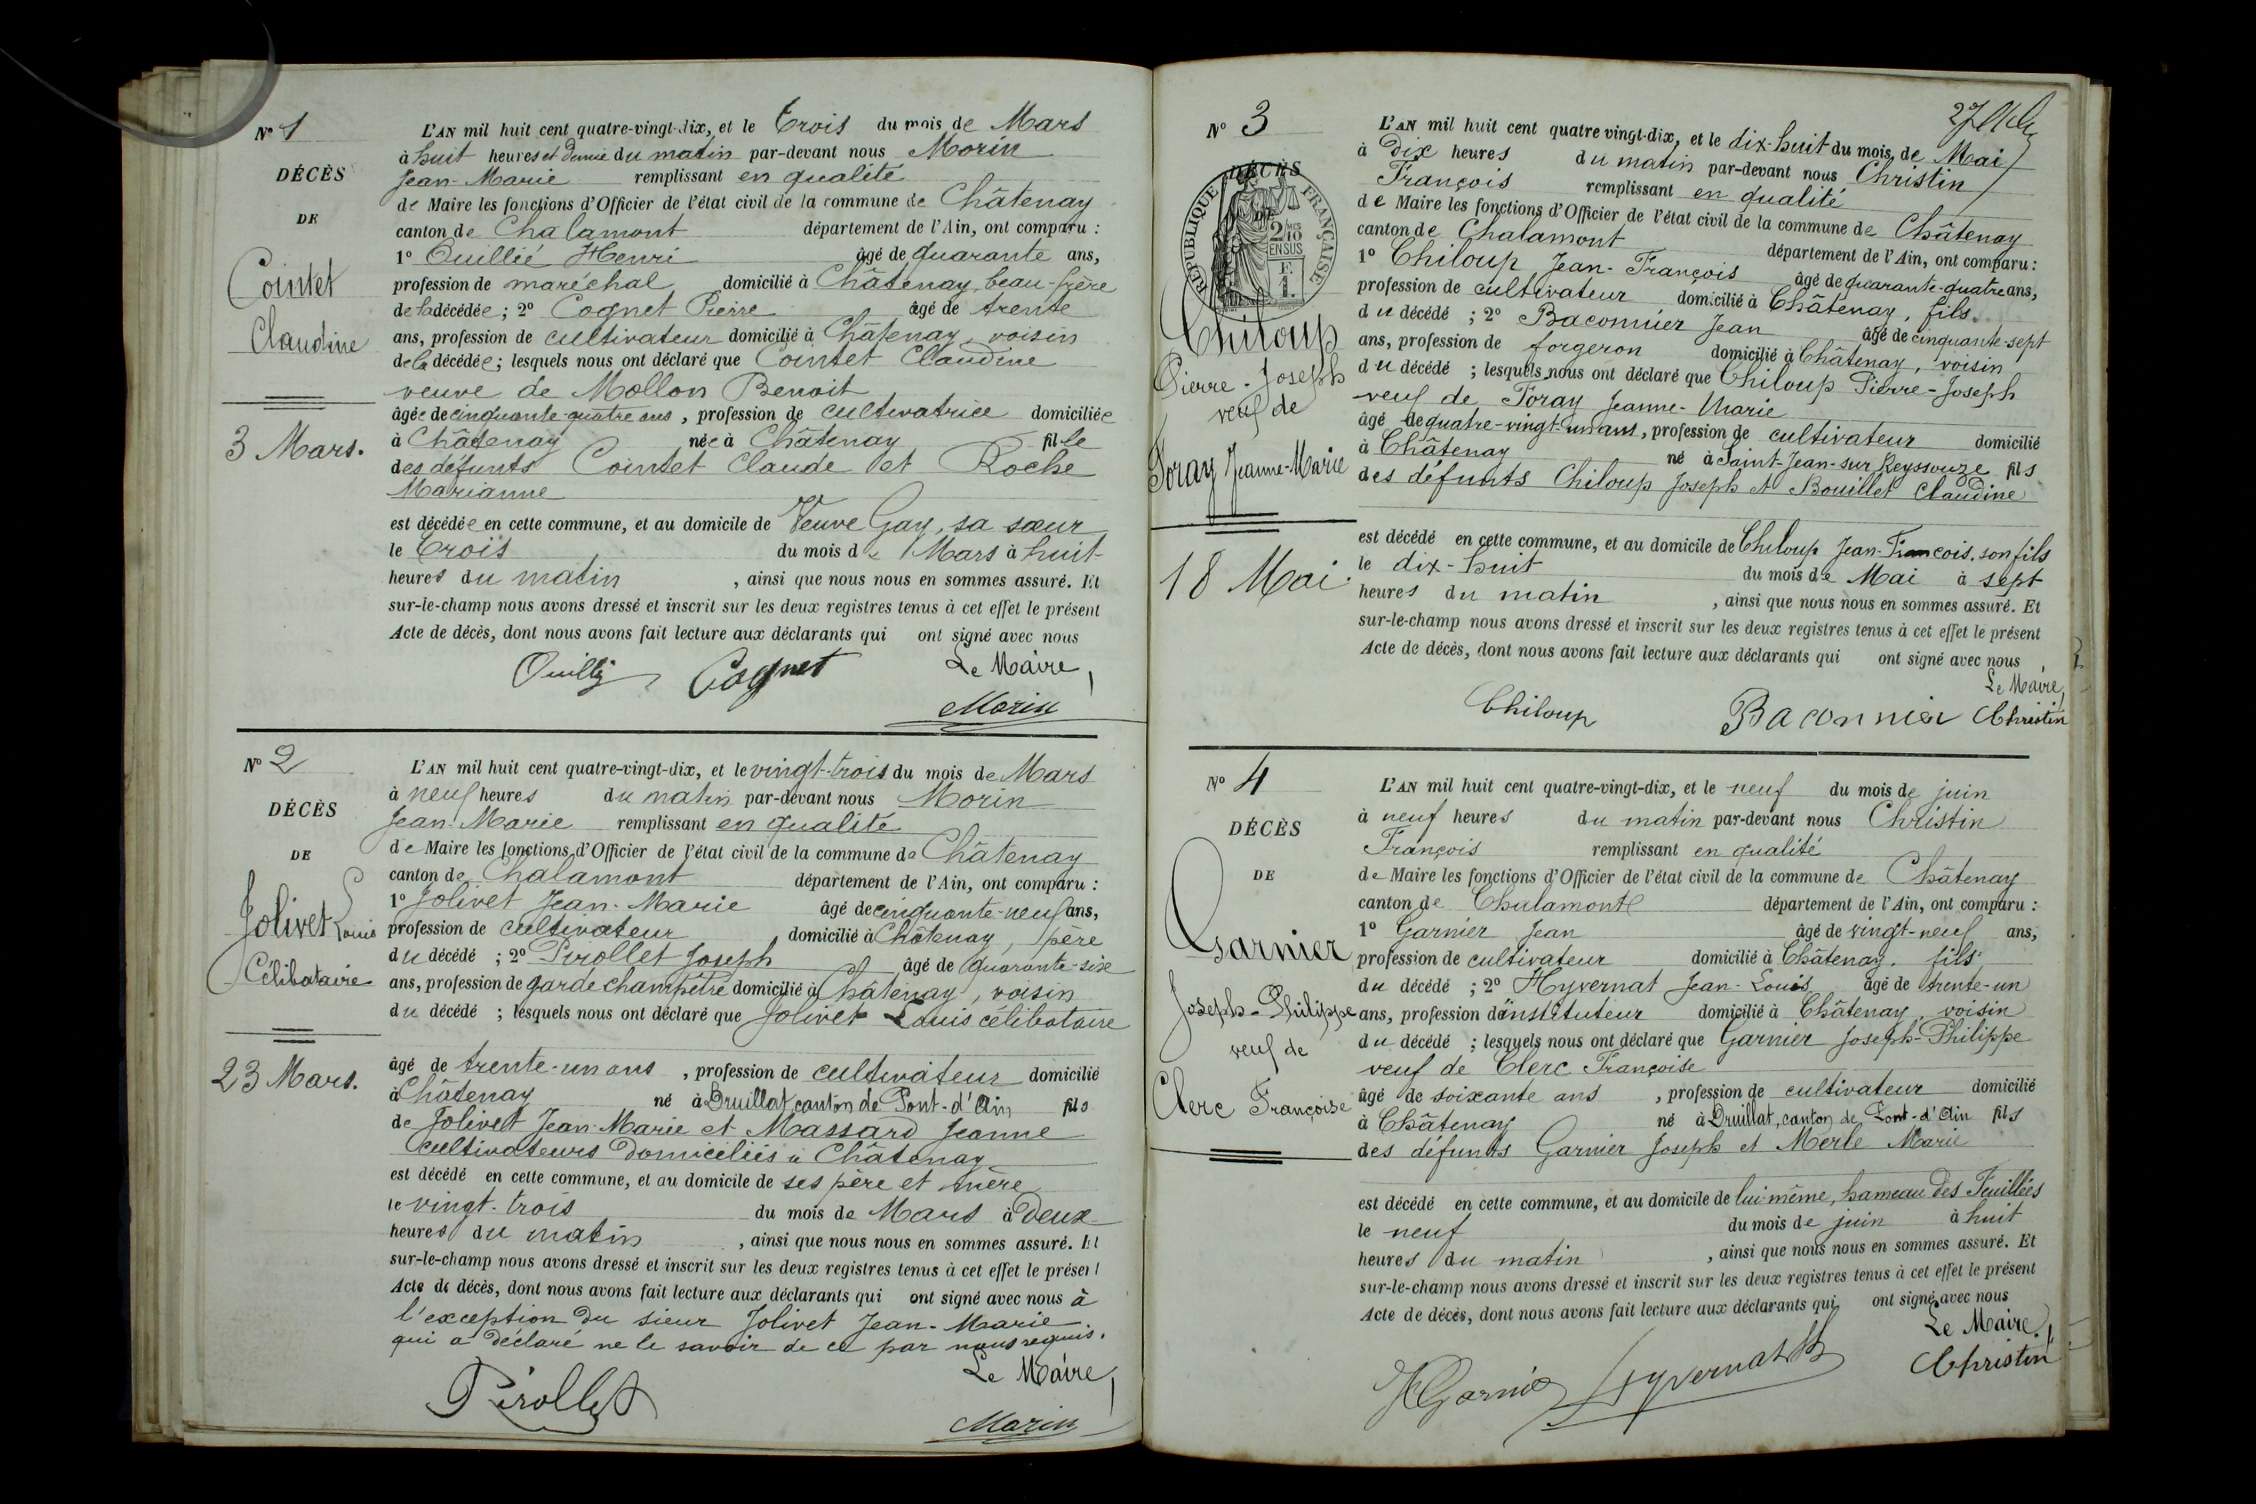 N° 1
DÉCÈS
DE
Cointet
Claudine
3 Mars.
L'AN mil huit cent quatre-vingt-dix, et le trois du mois de Mars
à huit heures et demie du matin par-devant nous Morin
Jean-Marie remplissant en qualité
de Maire les fonctions d'Officier de l'état civil de la commune de Châtenay
canton de Chalamont département de l'Ain, ont comparu :
1° Ouillié Henri âgé de quarante ans,
profession de maréchal domicilié à Châtenay, beau-frère
de la décédée ; 2° Cognet Pierre âgé de trente
ans, profession de cultivateur domicilié à Châtenay, voisin
de la décédée ; lesquels nous ont déclaré que Cointet Claudine
veuve de Mollon Benoit
âgée de cinquante-quatre ans, profession de cultivatrice domiciliée
à Châtenay née à Châtenay fille
des défunts Cointet Claude et Roche
Marianne
est décédée en cette commune, et au domicile de Veuve Gay, sa sœur
le trois du mois de Mars à huit
heures du matin , ainsi que nous nous en sommes assuré. Et
sur-le-champ nous avons dressé et inscrit sur les deux registres tenus à cet effet le présent
Acte de décès, dont nous avons fait lecture aux déclarants qui ont signé avec nous
Le Maire,
Cognet
Morin
N° 2
DÉCÈS
DE
Jolivet Louis
Célibataire
23 Mars.
L'AN mil huit cent quatre-vingt-dix, et le vingt-trois du mois de Mars
à neuf heures du matin par-devant nous Morin
Jean-Marie remplissant en qualité
de Maire les fonctions d'Officier de l'état civil de la commune de Châtenay
canton de Chalamont département de l'Ain, ont comparu :
1° Jolivet Jean-Marie âgé de cinquante-neuf ans,
profession de cultivateur domicilié à Châtenay, père
du décédé ; 2° Pirollet Joseph âgé de quarante-six
ans, profession de garde champêtre domicilié à Châtenay, voisin
du décédé ; lesquels nous ont déclaré que Jolivet Louis célibataire
âgé de trente-un ans , profession de cultivateur domicilié
à Châtenay né à Druillat, canton de Pont-d'Ain fils
de Jolivet Jean-Marie et Massard Jeanne
cultivateurs domiciliés à Châtenay
est décédé en cette commune, et au domicile de ses père et mère
le vingt-trois du mois de Mars à deux
heures du matin , ainsi que nous nous en sommes assuré. Et
sur-le-champ nous avons dressé et inscrit sur les deux registres tenus à cet effet le présent
Acte de décès, dont nous avons fait lecture aux déclarants qui ont signé avec nous à
l'exception du sieur Jolivet Jean-Marie
qui a déclaré ne le savoir de ce par nous requis.
Le Maire,
Pirollet
Morin
27
N° 3
DÉCÈS
DE
RÉPUBLIQUE FRANÇAISE
2/10 EN SUS
F.
1.
Chiloup
Pierre-Joseph
veuf de
Foray Jeanne-Marie
18 Mai.
L'AN mil huit cent quatre vingt-dix, et le dix-huit du mois de Mai
à Dix heures du matin par-devant nous Christin
François remplissant en qualité
de Maire les fonctions d'Officier de l'état civil de la commune de Châtenay
canton de Chalamont département de l'Ain, ont comparu :
1° Chiloup Jean-François âgé de quarante-quatre ans,
profession de cultivateur domicilié à Châtenay, fils
du décédé ; 2° Baconnier Jean âgé de cinquante-sept
ans, profession de forgeron domicilié à Châtenay, voisin
du décédé ; lesquels nous ont déclaré que Chiloup Pierre-Joseph
veuf de Foray Jeanne-Marie
âgé de quatre-vingt-un ans, profession de cultivateur domicilié
à Châtenay né à Saint-Jean-sur Reyssouze fils
des défunts Chiloup Joseph et Bouillet Claudine
est décédé en cette commune, et au domicile de Chiloup Jean-François, son fils
le dix-huit du mois de Mai à sept
heures du matin , ainsi que nous nous en sommes assuré. Et
sur-le-champ nous avons dressé et inscrit sur les deux registres tenus à cet effet le présent
Acte de décès, dont nous avons fait lecture aux déclarants qui ont signé avec nous,
Le Maire,
Chiloup Baconnier Christin
N° 4
DÉCÈS
DE
Garnier
Joseph-Philippe
veuf de
Clerc Françoise
L'AN mil huit cent quatre-vingt-dix, et le neuf du mois de juin
à neuf heures du matin par-devant nous Christin
François remplissant en qualité
de Maire les fonctions d'Officier de l'état civil de la commune de Châtenay
canton de Chalamont département de l'Ain, ont comparu :
1° Garnier Jean âgé de vingt-neuf ans,
profession de cultivateur domicilié à Châtenay. fils
du décédé ; 2° Hyvernat Jean-Louis âgé de trente-un
ans, profession d'instituteur domicilié à Châtenay, voisin
du décédé ; lesquels nous ont déclaré que Garnier Joseph-Philippe
veuf de Clerc Françoise
âgé de soixante ans , profession de cultivateur domicilié
à Châtenay né à Druillat, canton de Pont-d'Ain fils
des défunts Garnier Joseph et Merle Marie
est décédé en cette commune, et au domicile de lui-même, hameau des Feuillées
le neuf du mois de juin à huit
heures du matin , ainsi que nous nous en sommes assuré. Et
sur-le-champ nous avons dressé et inscrit sur les deux registres tenus à cet effet le présent
Acte de décès, dont nous avons fait lecture aux déclarants qui ont signé avec nous
Le Maire,
JGarnier Hyvernat Christin